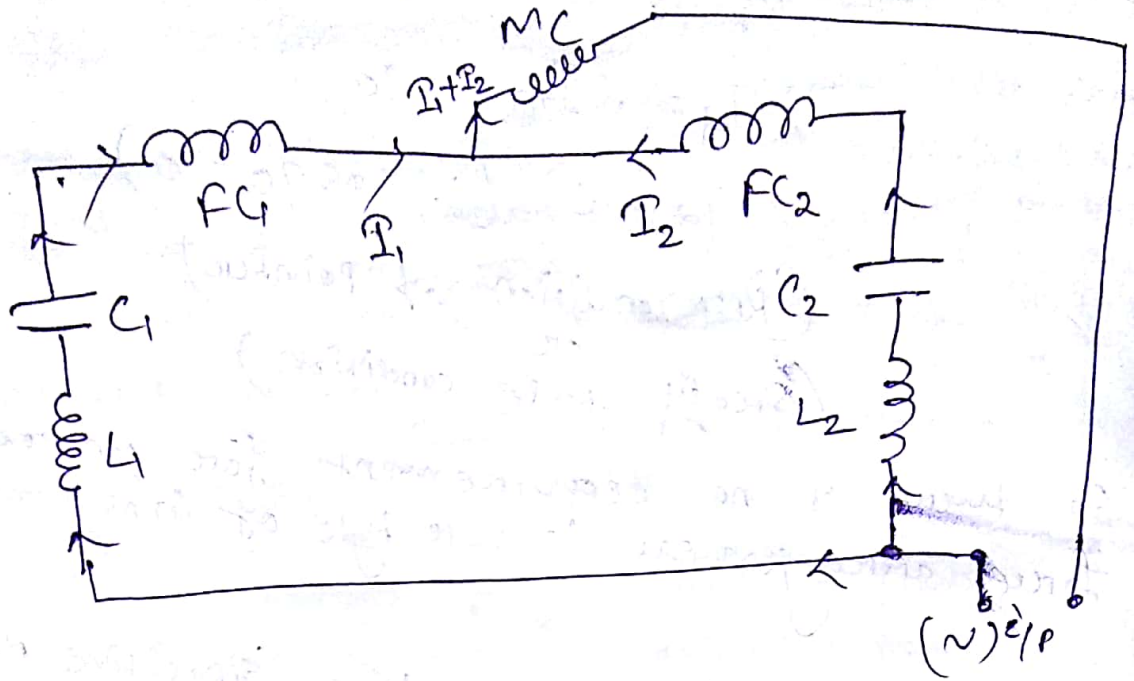 MC
I₁+I₂
FC₁
I₁
I₂
FC₂
C₁
C₂
L₁
L₂
(N) i/p